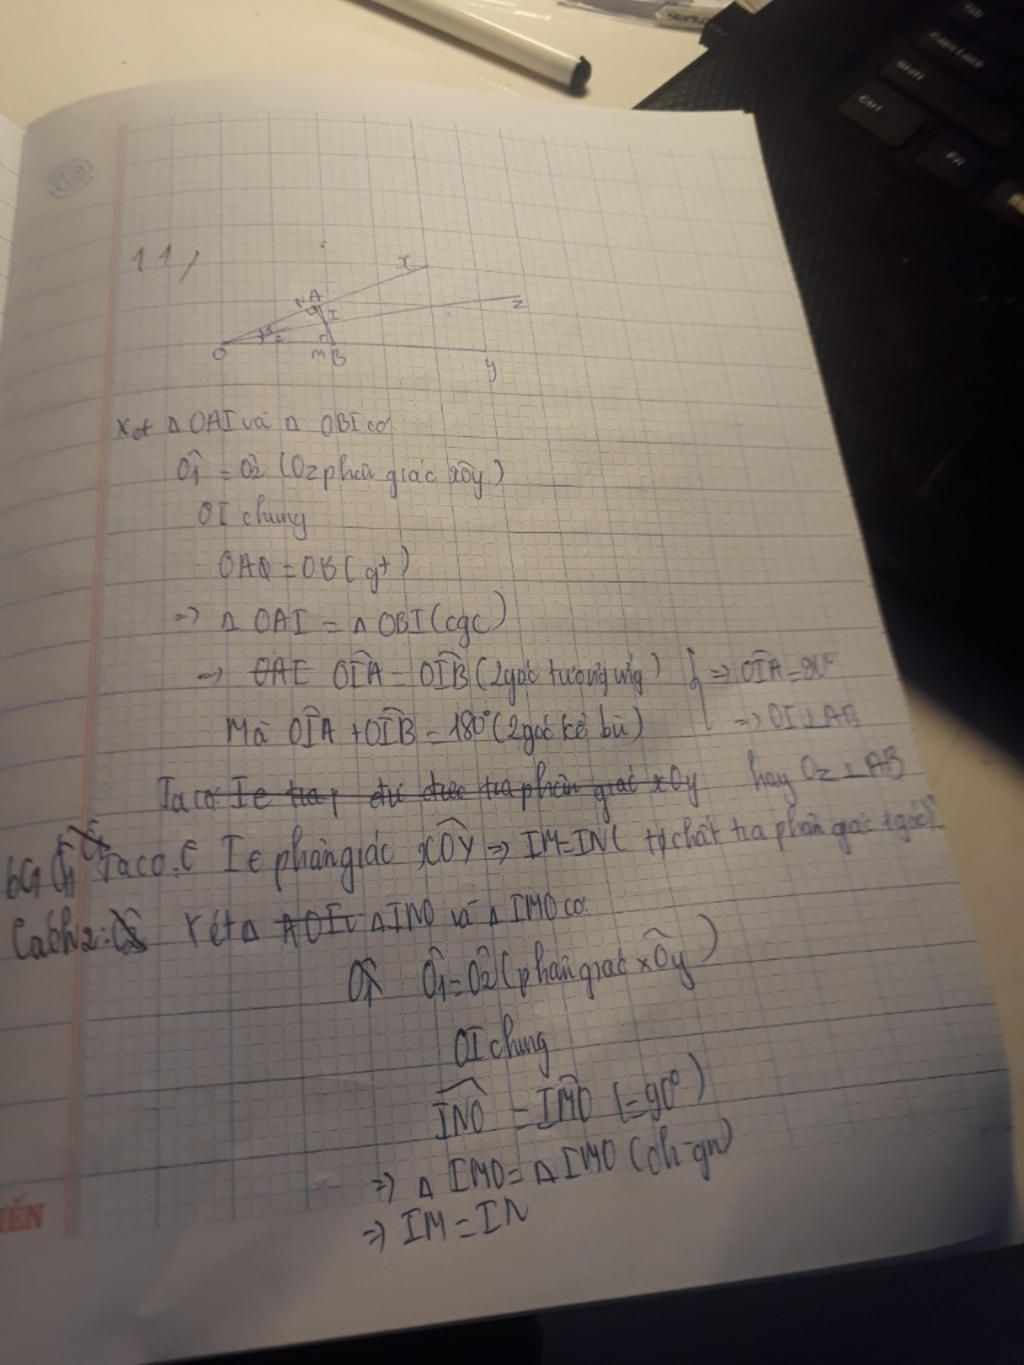 11/
x
N A
I
z
O
M B
y
Xét Δ OAI và Δ OBI có:
Ô1 = Ô2 (Oz phân giác xÔy)
OI chung
OA = OB (gt)
=> Δ OAI = Δ OBI (cgc)
=> OAI OÎA = OÎB (2 góc tương ứng) } => OÎA = 90°
Mà OÎA + OÎB = 180° (2 góc kề bù) => OI ⊥ AB
Ta có I € phân giác xOy hay Oz ⊥ AB
Ta có: I € phân giác xÔy => IM = IN ( t/chất tia phân giác 1 góc)
Cách 2: Xét Δ AOI Δ INO và Δ IMO có:
Ô1 Ô1 = Ô2 (phân giác xÔy)
OI chung
INO = IMO (= 90°)
=> Δ IMO = Δ IMO (ch-gn)
=> IM = IN
ẾN
Ctrl
Shift
Caps Lock
Tab
FN